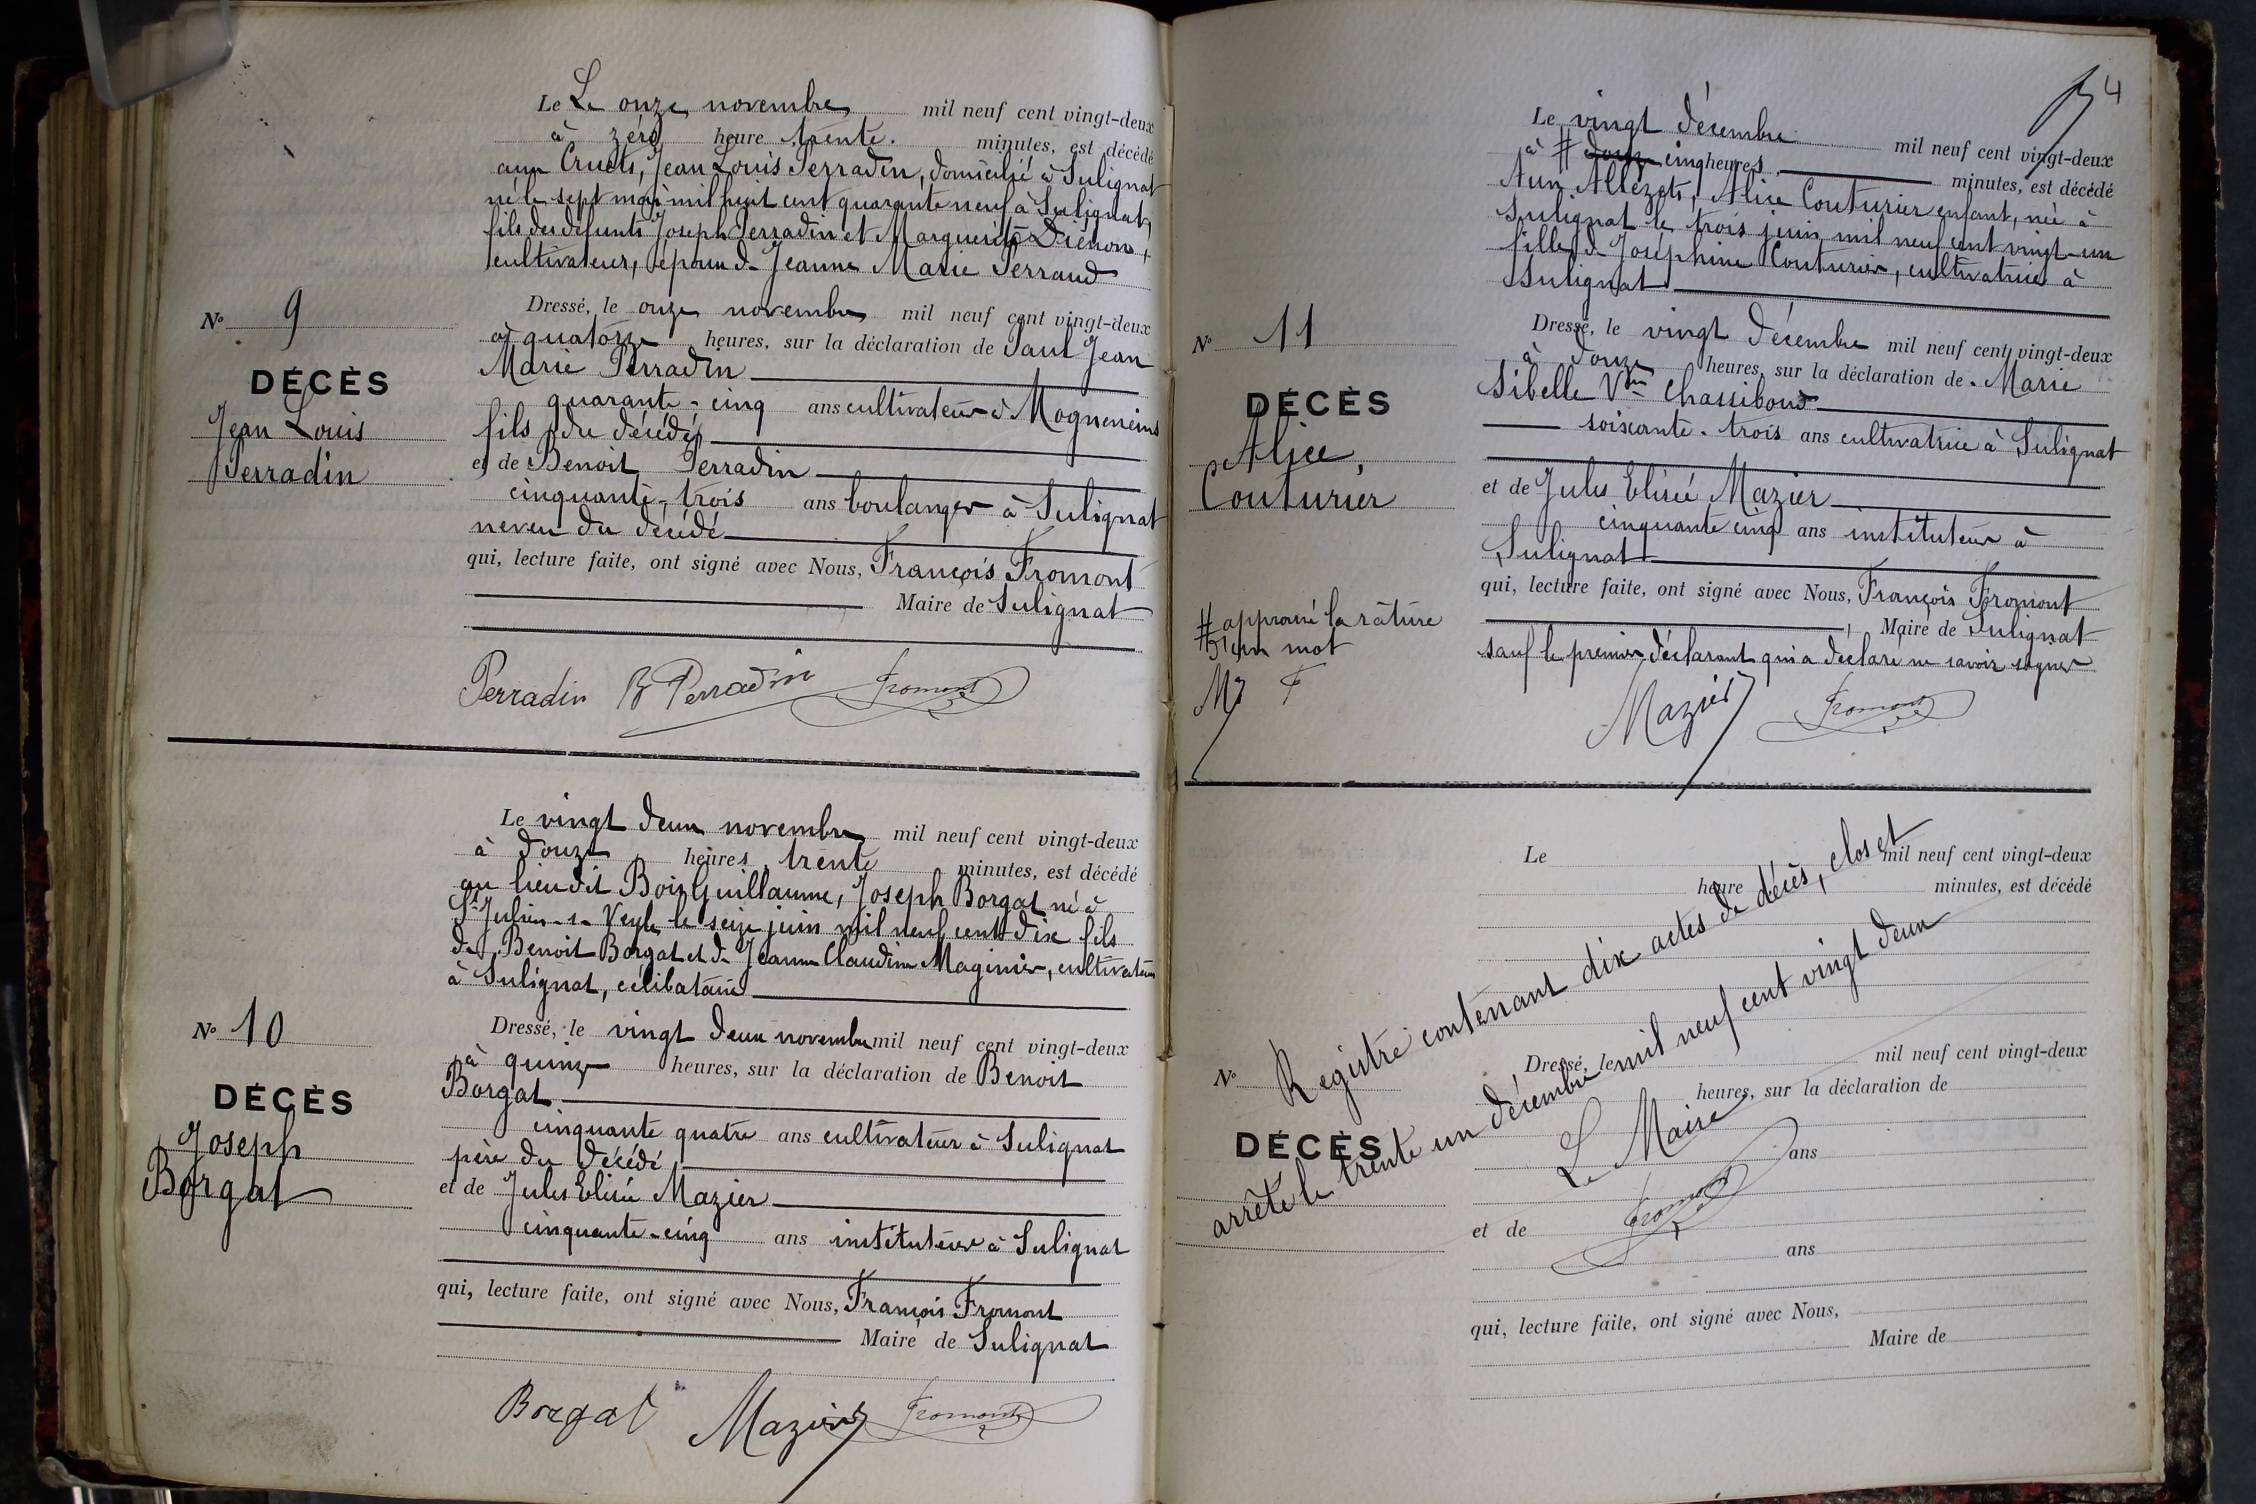 Le Le onze novembre mil neuf cent vingt-deux
à zéro heure trente. minutes, est décédé
aux Cruets, Jean Louis Perradin, domicilié à Sulignat
né le sept mai mil huit cent quarante neuf à Sulignat,
fils des défunts Joseph Perradin et Marguerite
cultivateur, époux de Jeanne Marie Perraud
Dressé, le onze novembre mil neuf cent vingt-deux
à quatorze heures, sur la déclaration de Paul Jean
Marie Perradin
quarante-cinq ans cultivateur à Mogneneins
fils du décédé
et de Benoit Perradin
cinquante-trois ans boulanger à Sulignat
neveu du décédé
qui, lecture faite, ont signé avec Nous, François Fromont
Maire de Sulignat
Perradin B Perradin Fromont
No 9
DÉCÈS
Jean Louis
Perradin
Le vingt deux novembre mil neuf cent vingt-deux
à douze heures trente minutes, est décédé
au lieu dit Bois Guillaume, Joseph Borgat né à
St Julien-s-Veyle le seize juin mil neuf cent dix fils
de Benoit Borgat et de Jeanne Claudine Maginier, cultivateur
à Sulignat, célibataire
Dressé, le vingt deux novembre mil neuf cent vingt-deux
à quinze heures, sur la déclaration de Benoit
Borgat
cinquante quatre ans cultivateur à Sulignat
père du décédé
et de Jules Elisée Mazier
cinquante-cinq ans instituteur à Sulignat
qui, lecture faite, ont signé avec Nous, François Fromont
Maire de Sulignat
Borgat Mazier Fromont
No 10
DÉCÈS
Joseph
Borgat
4
Le vingt décembre mil neuf cent vingt-deux
à # douze cinq heures minutes, est décédé
Aux Allézets, Alice Couturier enfant, née à
Sulignat le trois juin mil neuf cent vingt-un
fille de Joséphine Couturier, cultivatrice à
Sulignat
Dressé, le vingt décembre mil neuf cent vingt-deux
à douze heures, sur la déclaration de Marie
Sibelle Vve Chassiboud
soixante-trois ans cultivatrice à Sulignat
et de Jules Elisée Mazier
cinquante cinq ans instituteur à
Sulignat
qui, lecture faite, ont signé avec Nous, François Fromont
Maire de Sulignat
sauf le premier déclarant qui a déclaré ne savoir signer
Mazier Fromont
No 11
DÉCÈS
Alice,
Couturier
# approuvé la râture
d'un mot
Mz F
Le mil neuf cent vingt-deux
heure minutes, est décédé
Dressé, le mil neuf cent vingt-deux
heures, sur la déclaration de
ans
et de
ans
qui, lecture faite, ont signé avec Nous,
Maire de
No
DÉCÈS
Registre contenant dix actes de décès, clos et
arrêté le trente un décembre mil neuf cent vingt deux
Le Maire
Fromont